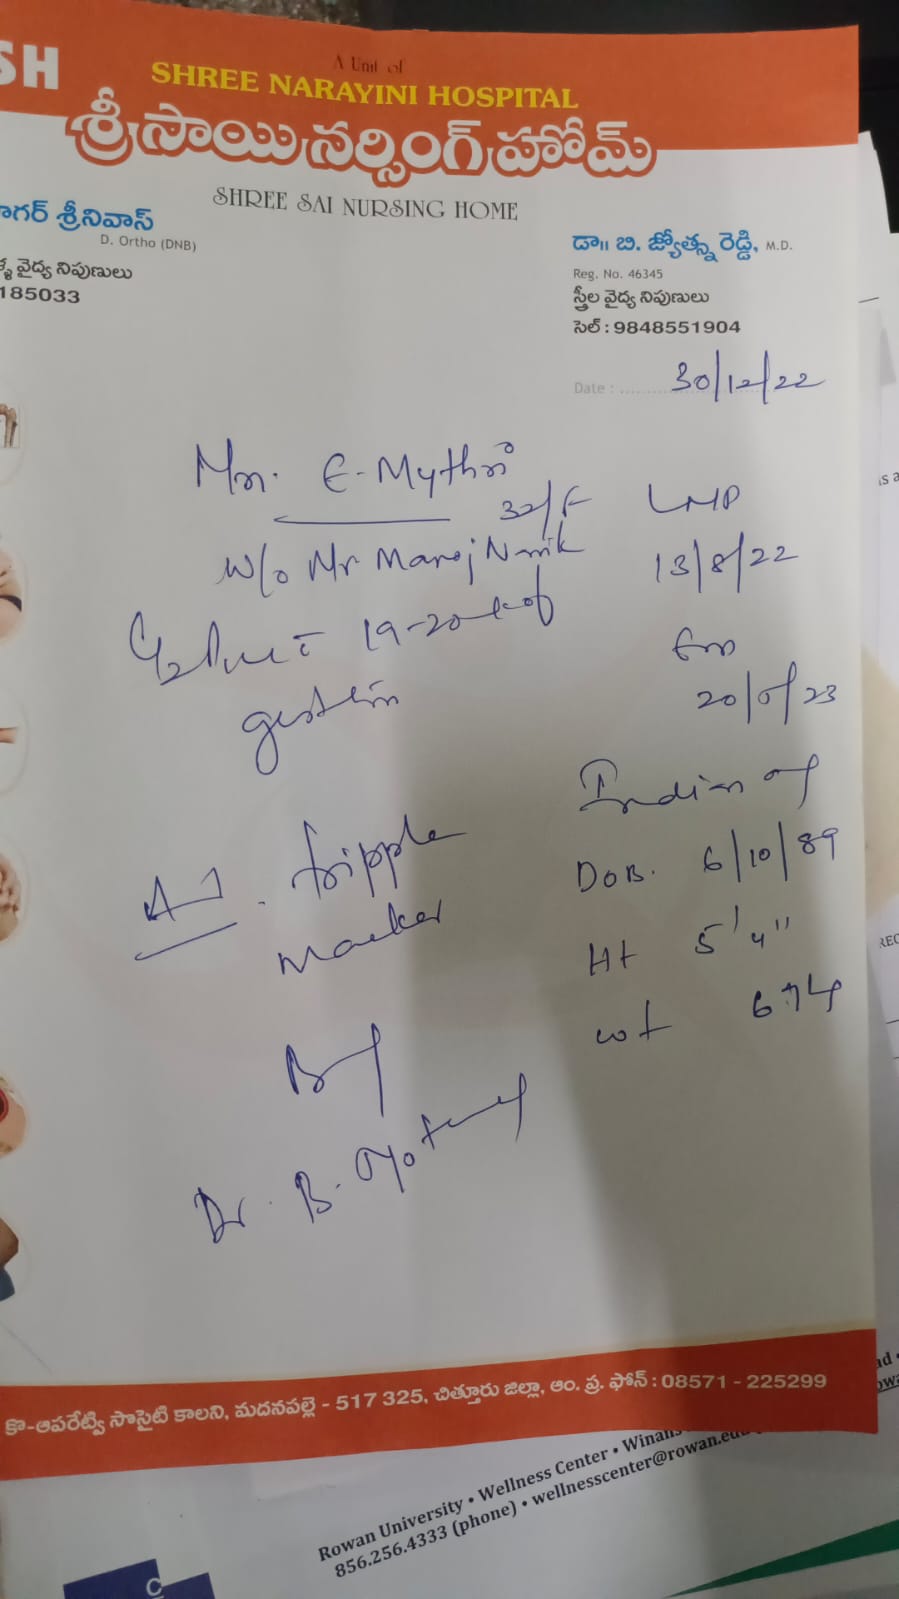 SH
A Unit of
SHREE NARAYINI HOSPITAL
శ్రీసాయినర్సింగ్‌హోమ్
SHREE SAI NURSING HOME
గర్ శ్రీనివాస్
D. Ortho (DNB)
వైద్య నిపుణులు
185033
డా॥ బి. జ్యోత్స్న రెడ్డి, M.D.
Reg. No. 46345
స్త్రీల వైద్య నిపుణులు
సెల్ : 9848551904
Date : 30/12/22
E-Mythri
32/F
W/o Mr Manoj Naik
LMP
13/8/22
19-20 of
20/5/23
Indian
DOB. 6/10/89
tripple
marker
Ht 5'4"
wt
Dr. B.
కో-ఆపరేట్వి సొసైటి కాలని, మదనపల్లె - 517 325, చిత్తూరు జిల్లా, ఆం. ప్ర. ఫోన్ : 08571 - 225299
Rowan University • Wellness Center •
856.256.4333 (phone) • wellnesscenter@rowan.edu
C